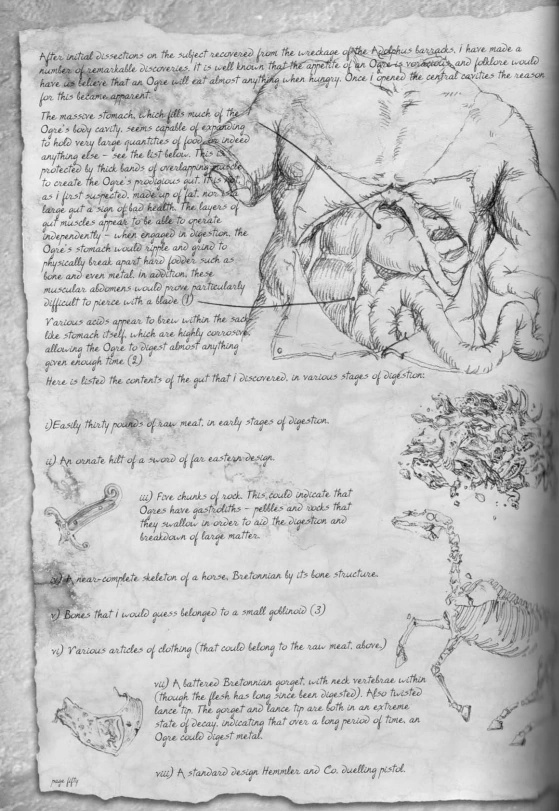 After initial dissections on the subject recovered from the wreckage of the Adolphus barracks, I have made a
number of remarkable discoveries. It is well known that the appetite of an Ogre is voracious, and folklore would
have us believe that an Ogre will eat almost anything when hungry. Once I opened the central cavities the reason
for this became apparent.
The massive stomach, which fills much of the
Ogre's body cavity, seems capable of expanding
to hold very large quantities of food, or indeed
anything else – see the list below. This is
protected by thick bands of overlapping muscle
to create the Ogre's prodigious gut. It is
as I first suspected, made up of fat, nor is a
large gut a sign of bad health. The layers of
gut muscles appear to be able to operate
independently – when engaged in digestion, the
Ogre's stomach would ripple and grind to
physically break apart hard fodder such as
bone and even metal. In addition, these
muscular abdomens would prove particularly
difficult to pierce with a blade (1)
Various acids appear to brew within the sack
like stomach itself, which are highly corrosive,
allowing the Ogre to digest almost anything
given enough time (2)
Here is listed the contents of the gut that I discovered, in various stages of digestion:
i) Easily thirty pounds of raw meat, in early stages of digestion.
ii) An ornate hilt of a sword of far eastern design.
iii) Five chunks of rock. This could indicate that
Ogres have gastroliths – pebbles and rocks that
they swallow in order to aid the digestion and
breakdown of large matter.
iv) A near-complete skeleton of a horse, Bretonnian by its bone structure.
v) Bones that I would guess belonged to a small goblinoid (3)
vi) Various articles of clothing (that could belong to the raw meat, above)
vii) A battered Bretonnian gorget, with neck vertebrae within
(though the flesh has long since been digested). Also twisted
lance tip. The gorget and lance tip are both in an extreme
state of decay, indicating that over a long period of time, an
Ogre could digest metal.
viii) A standard design Hemmler and Co. duelling pistol.
page fifty